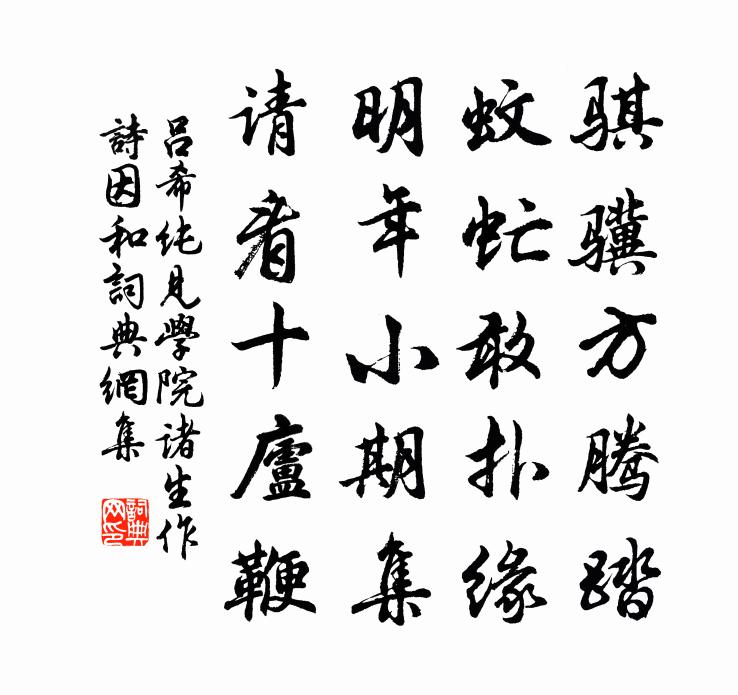 骐骥方腾踏
蚊虻敢扑缘
明年小期集
请看十庐鞭
吕希纯見學院诸生作
詩因和詞典網集
詞典网印